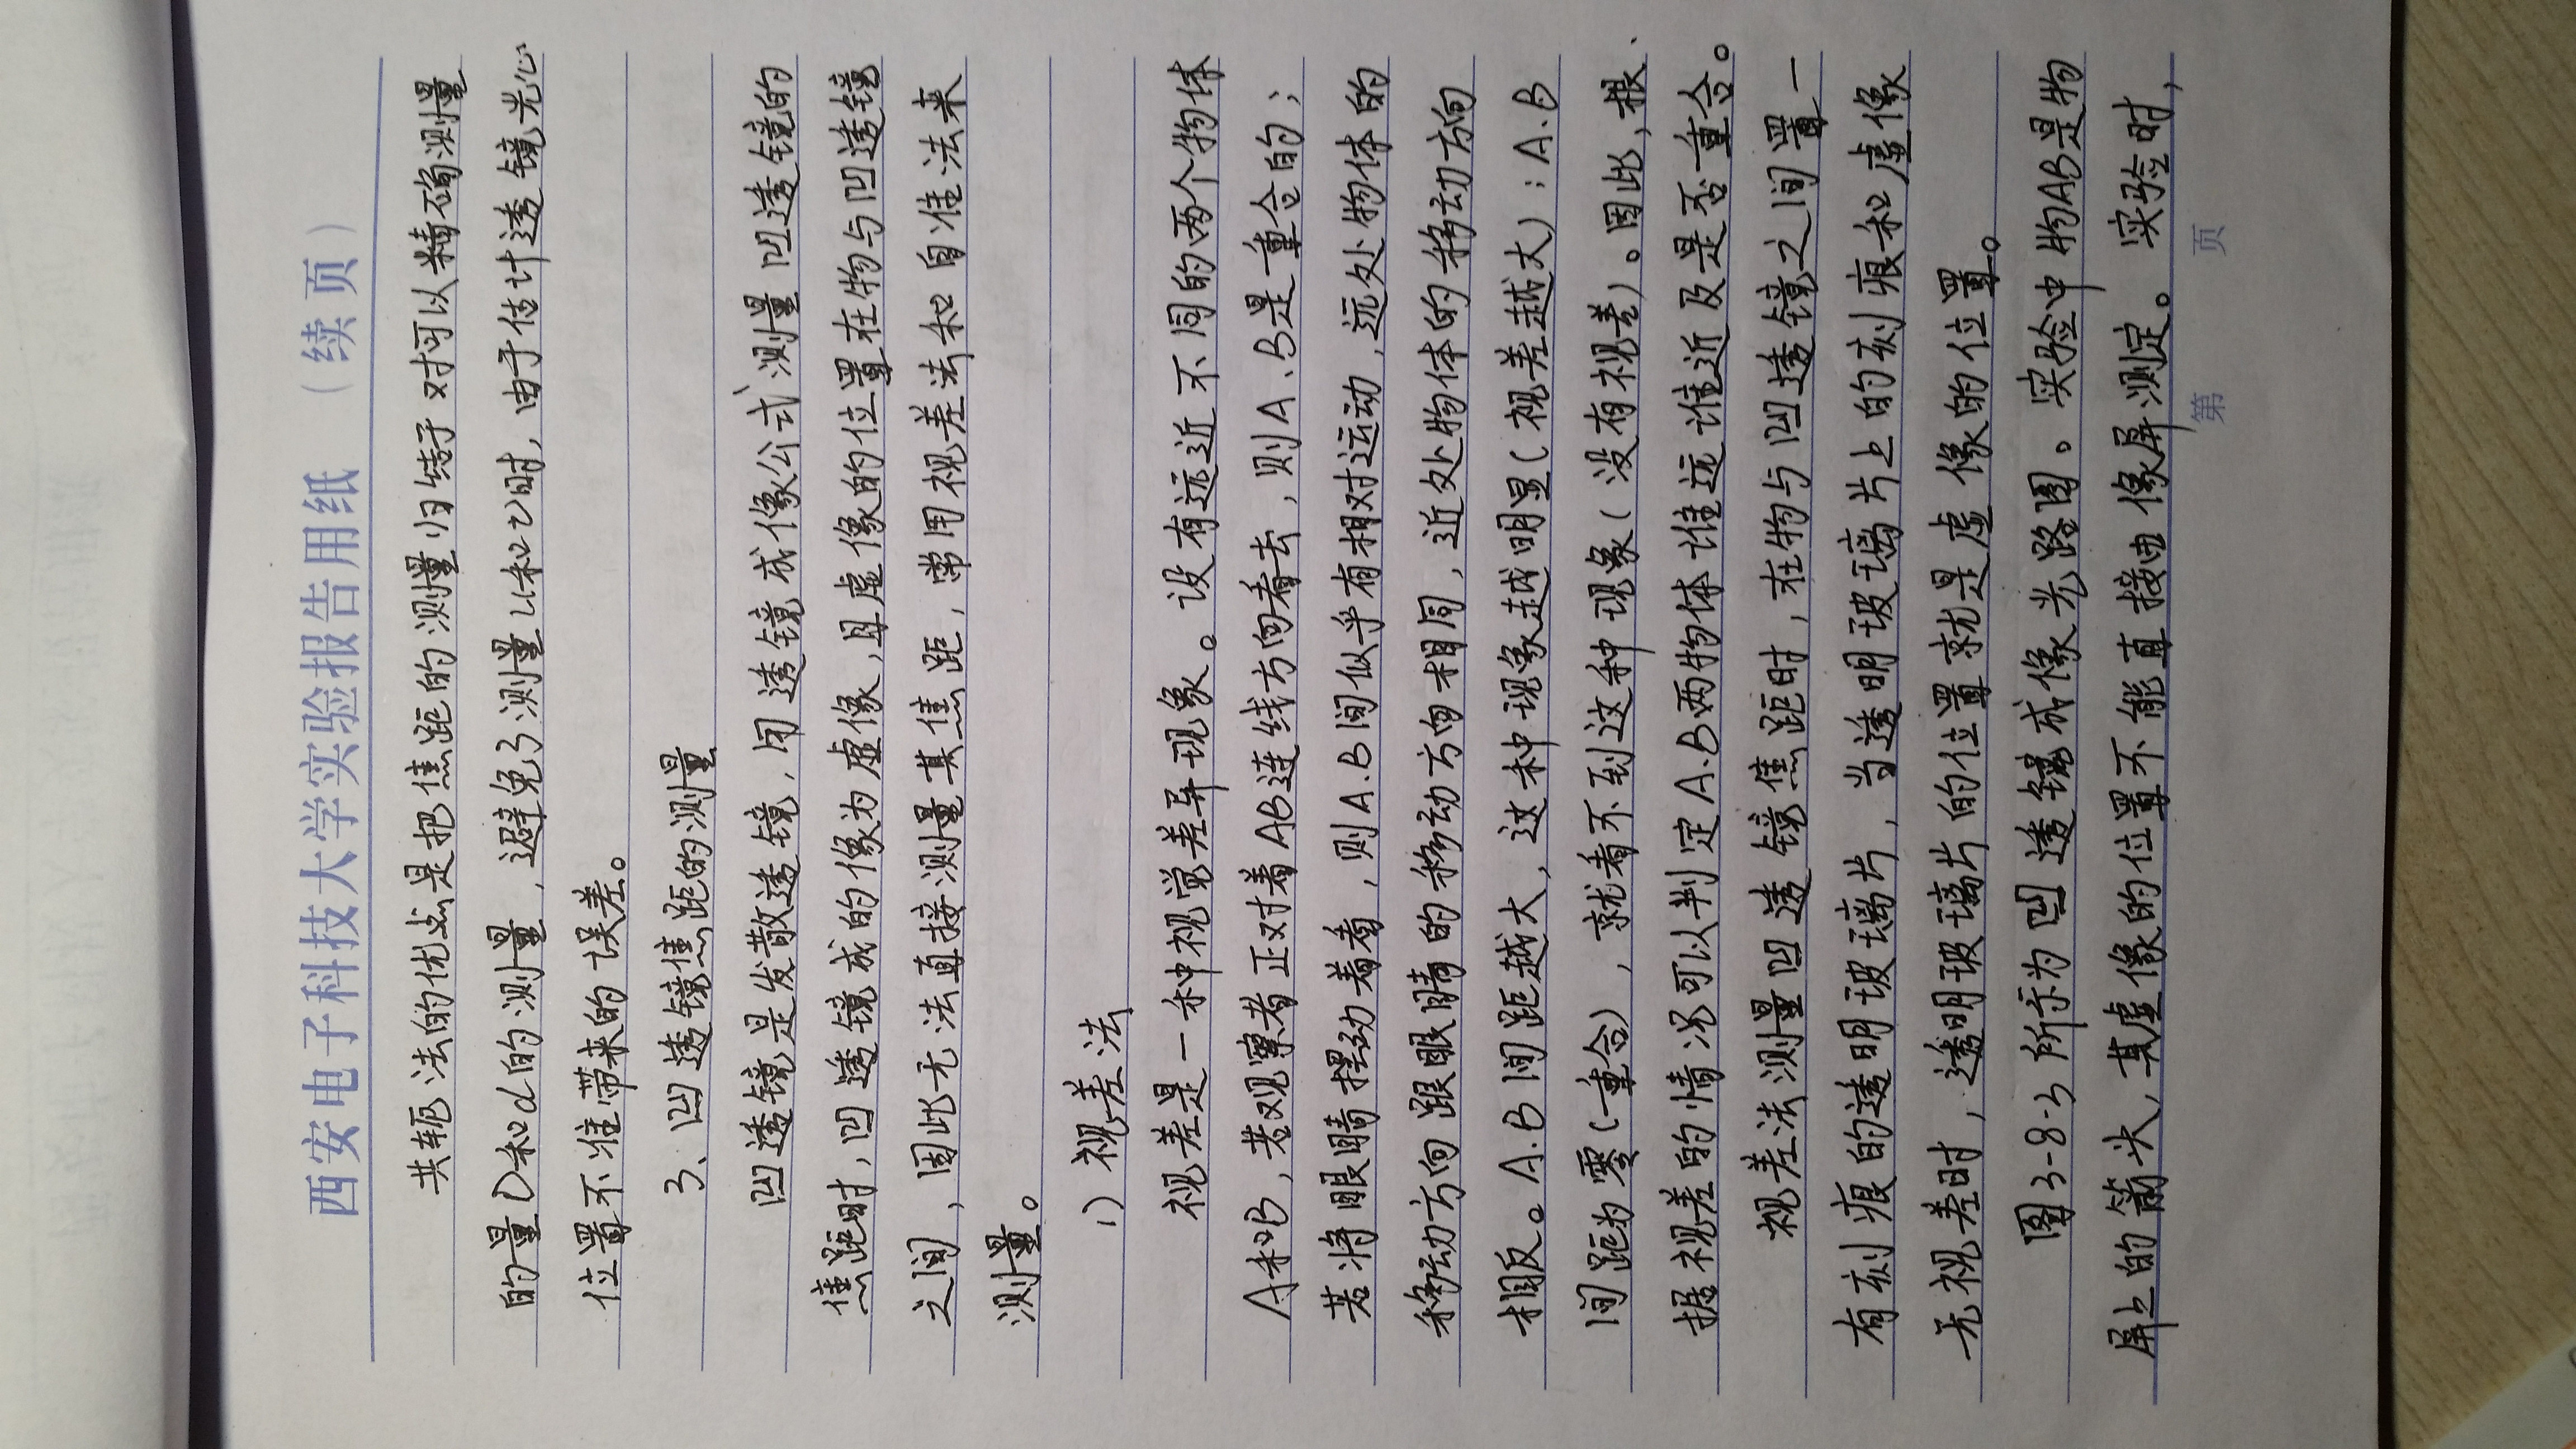 西安电子科技大学实验报告用纸（续页）
共轭法的优点是把焦距的测量归结于对可以精确测量
的量D和d的测量，避免了测量u和v时，由于估计透镜光心
位置不准带来的误差。
3、凹透镜焦距的测量
凹透镜是发散透镜，用透镜成像公式测量凹透镜的
焦距时，凹透镜成的像为虚像，且虚像的位置在物与凹透镜
之间，因此无法直接测量其焦距，常用视差法和自准法来
测量。
1）视差法
视差是一种视觉差异现象。设有远近不同的两个物体
A和B，若观察者正对着AB连线方向看去，则A.B是重合的；
若将眼睛摆动着看，则A.B间似乎有相对运动，远处物体的
移动方向跟眼睛的移动方向相同，近处物体的移动方向
相反。A.B间距越大，这种现象越明显（视差越大）：A.B
间距为零（重合），就看不到这种现象（没有视差）。因此，根
据视差的情况可以判定A.B两物体谁远谁近及是否重合。
视差法测量凹透镜焦距时，在物与凹透镜之间置一
有刻痕的透明玻璃片，当透明玻璃片上的刻痕和虚像
无视差时，透明玻璃片的位置就是虚像的位置。
图3-8-3所示为凹透镜成像光路图。实验中物AB是物
屏上的箭头，其虚像的位置不能直接由像屏测定。实验时，
第 页